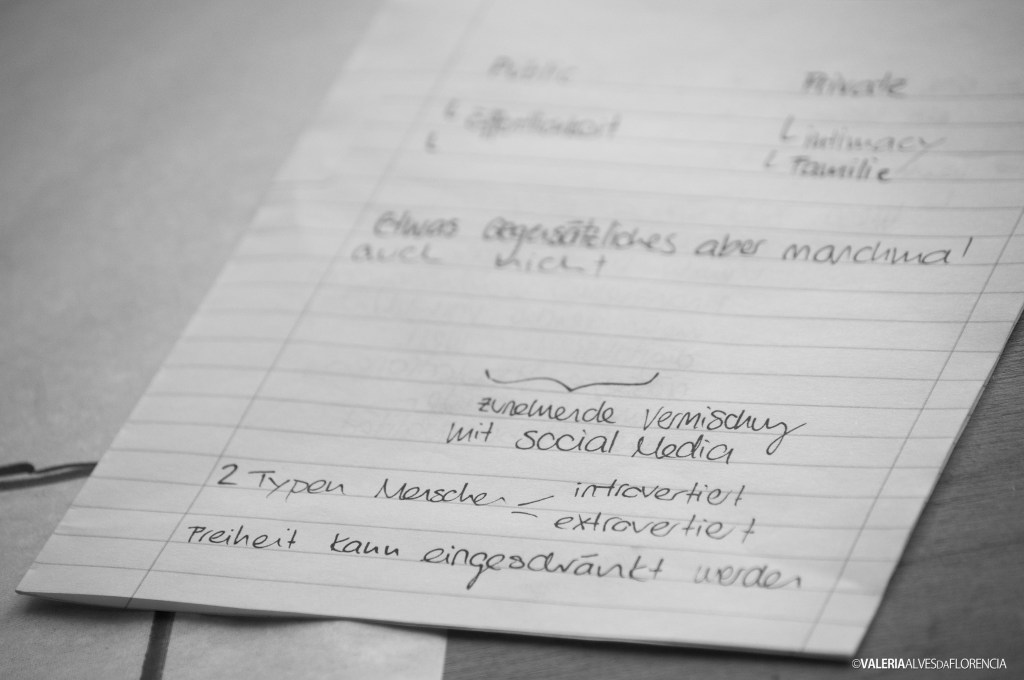 Public Private
└ Öffentlichkeit └ intimacy
└ └ Familie
Etwas gegensätzliches aber manchmal
auch nicht
zunehmende Vermischung
mit Social Media
2 Typen Menschen – introvertiert
– extrovertiert
Freiheit kann eingeschränkt werden
©VALERIAALVESDAFLORENCIA